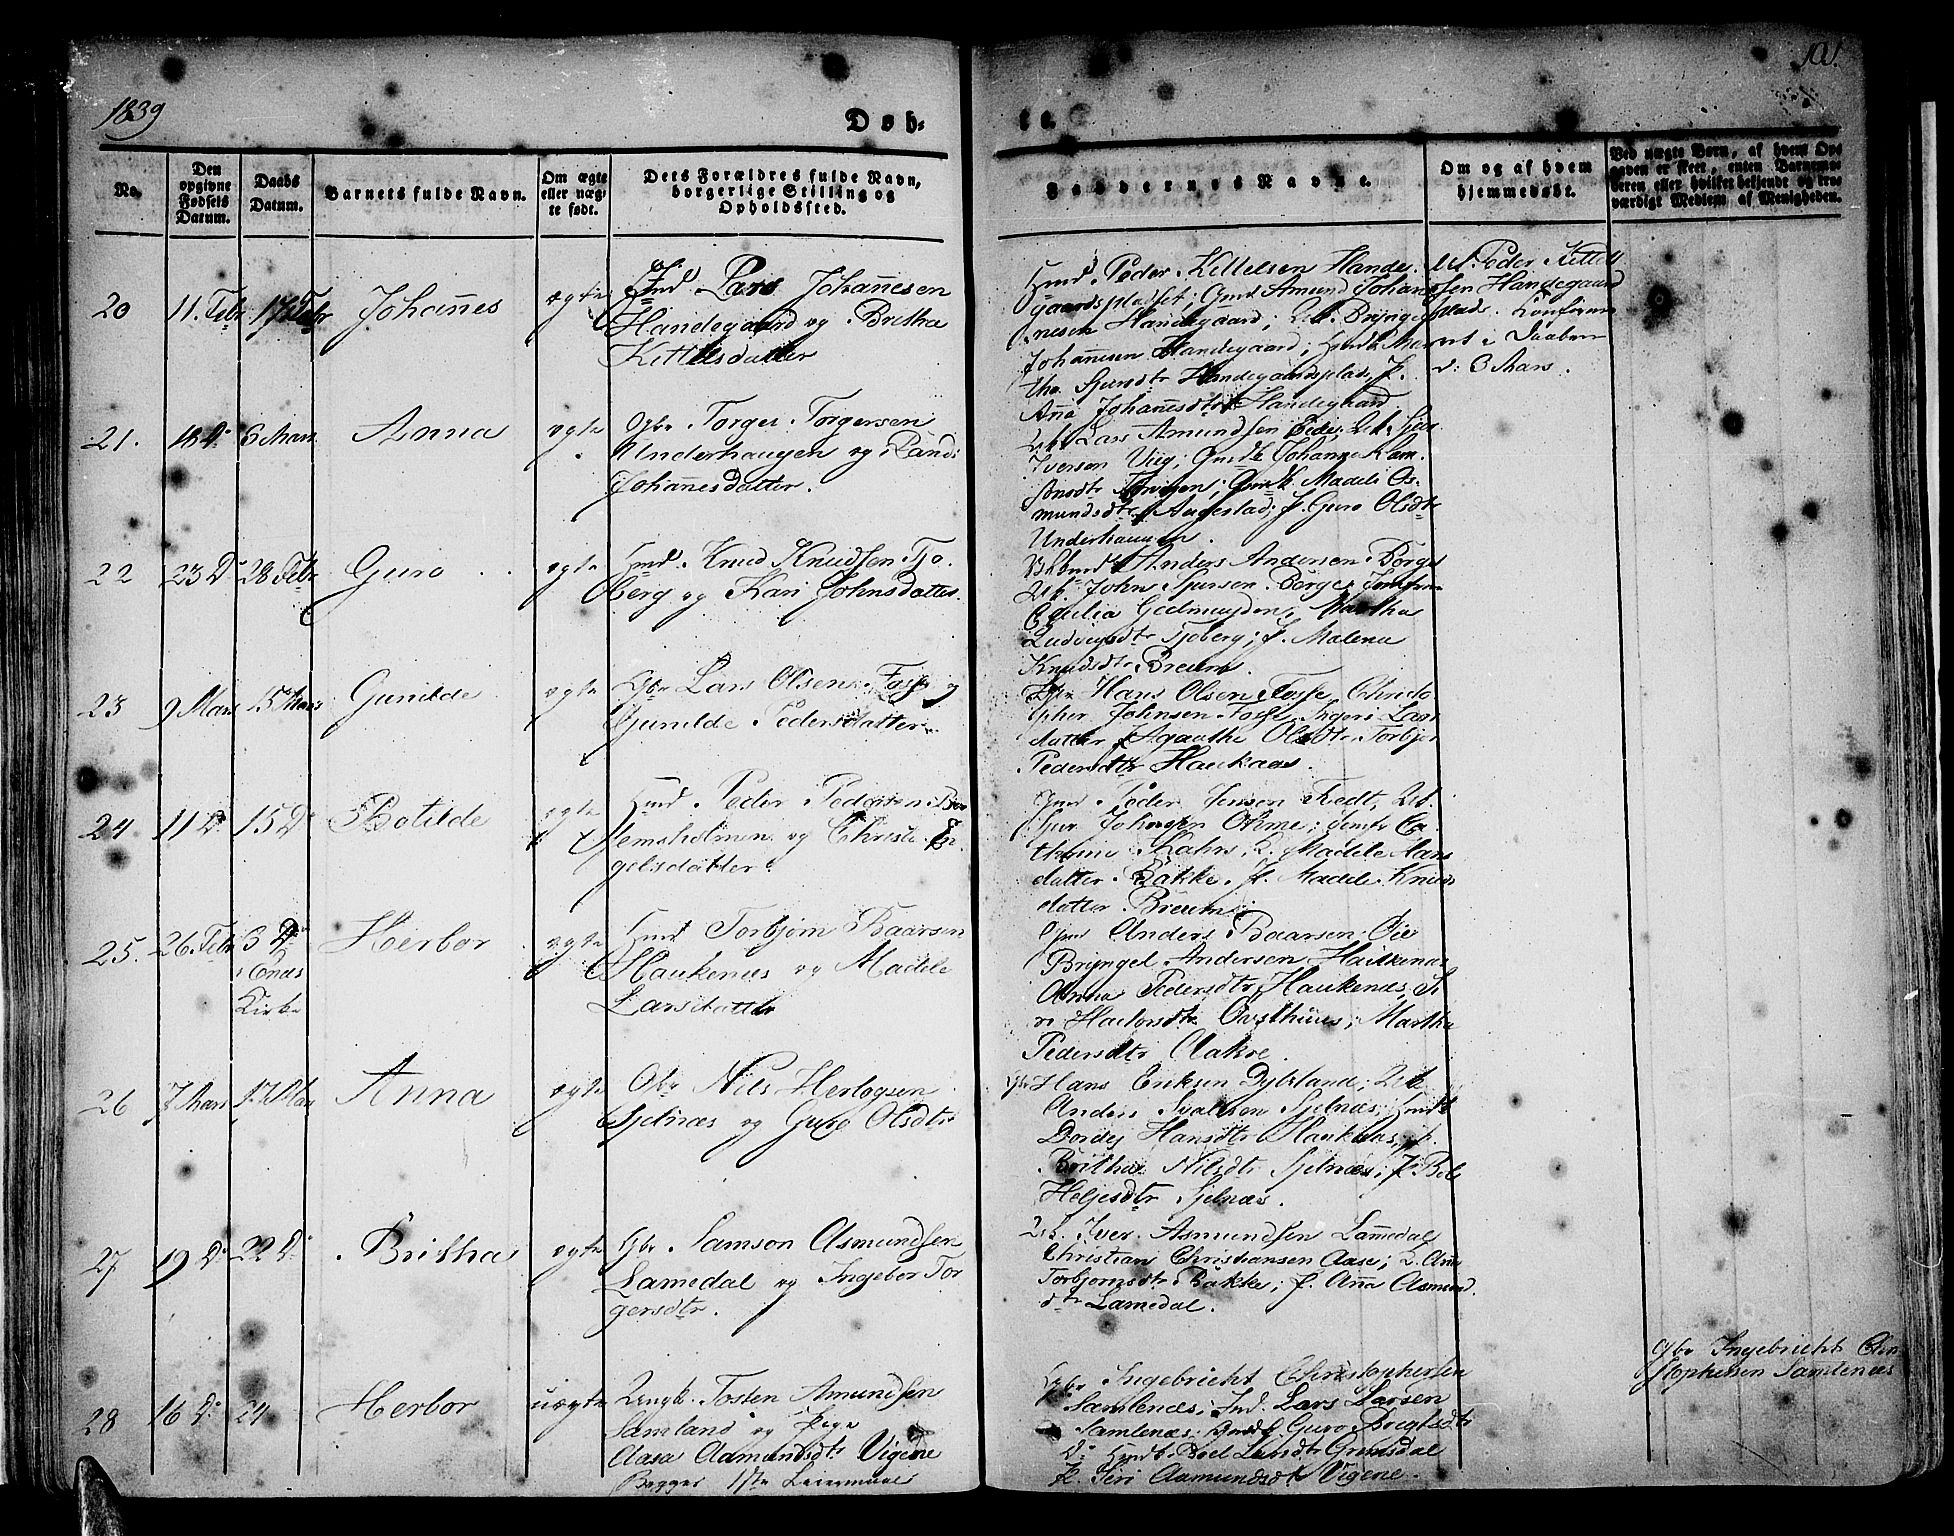 1839
101.
Døb-
te.
No.
Den opgivne Fødsels Datum.
Daabs Datum.
Barnets fulde Navn.
Om ægte eller uægte født.
Ders Forældres fulde Navn, borgerlige Stilling og Opholdssted.
Faddernes Navne.
Om og af hvem hjemmedøbt.
Ved uægte Børn, af hvem Opgaven er skeet, enten Barnemoderen eller hvilket beslægtede og troværdigt Medlem af Menigheden.
20
11. Febr
17 Febr
Johannes
ægte
Ind Lars Johannesen
Handegaard og Britha
Kittelsdatter
Hmd Peder Kittelsen Hande
gaardspladset; Gmd Amund Johan
nesen Handegaard;
Johannesen Handegaard;
tha Sjursdtr Handegaardsplads, J.
Anna Johannesdtr Handegaard
Peder Kittel
sen Handegaard
plads. Confirme
ret i Daaben
d: 3 Mars.
21.
18 Do
3 Mars
Anna
ægte
Gbr Torger Torgersen
Underhaugen og Rand
Johannesdatter.
Lars Amundsen Eide;
Iversen Vig; Gmdk Johanna Sam
sonsdtr; Gmdk Madele Os-
mundsdtr Augestad; J. Guro Olsdtr
Underhaugen.
22
23 Do
28 Febr
Guro
ægte
Hmd Knud Knudsen Tjo
berg og Kari Johnsdatter.
Anders Andersen Børge
John Sjursen Børge; Jomfru
Cecilia Geelmuyden, Martha
Ludvigsdtr Tjoberg; J. Malena
Knudsdtr Breum.
23
9 Mars
15 Mars
Gunilde
ægte
Gbr Lars Olsen Fosse og
Gunilde Pedersdatter
Gbr Hans Olsen Fosse, Christo
pher Johnsen Fosse, Ingeri Lars
datter, Agaathe Olsdtr, Torbjør
Pedersdtr Haukaas.
24
11 Do
15 Do
Botilde
ægte
Hmd Peder Pedersen
jemsholmen og Christi En
gelsdatter.
Gmd Peder Jensen Tvedt,
Johnsen; Jomfr Ca
thrine; Madele Aars
datter Bakke, J. Madele Knuds
datter Breum;
25.
26 Febr
3 Do
i Enæs
Kirke
Herbor
ægte
Hmd Torbjørn Baarsen
Haukenæs og Madele
Larsdatter
Gmd Anders Baarsen Øie
Bryngel Andersen Haukenæs
Anna Pedersdtr Haukenæs,
Østhuus; Martha
Pedersdtr Aakre.
26
7 Mars
17 Mar
Anna
ægte
Gbr Nils Herlogsen
Sjelnæs og Guro Olsdtr
Gbr Hans Eriksen Dybsland;
Anders Sjelnæs;
Dordej Hansdtr Haukaas,
Britha Nilsdtr Sjelnæs; J. Bol
Heljesdtr Sjelnæs.
27
19 Do
22 Do
Britha
ægte
Gbr Samson Asmundsen
Lamedal og Ingebor Tor
gersdtr.
Iver Asmundsen Lamedal
Christian Christiansen Aase; Anna
Torbjørnsdtr Bakke; J. Anna Asmund
dtr Lamedal.
28
16 Do
24
Herbor
uægte
Ungk. Tosten Amundsen
Samland og Pige
Aasa Aamundsdtr Vigene
Begges 1ste Leiermaal
Gbr Ingebricht Christophersen
Samlenæs; Ind. Lars Larsen
Samlenæs; Guro Brigtsdtr
Do Hmdk Boel Larsdtr Grimsdal
J. Siri Aamundsdtr Vigene.
Gbr Ingebricht Chri
stophersen Samlenæs